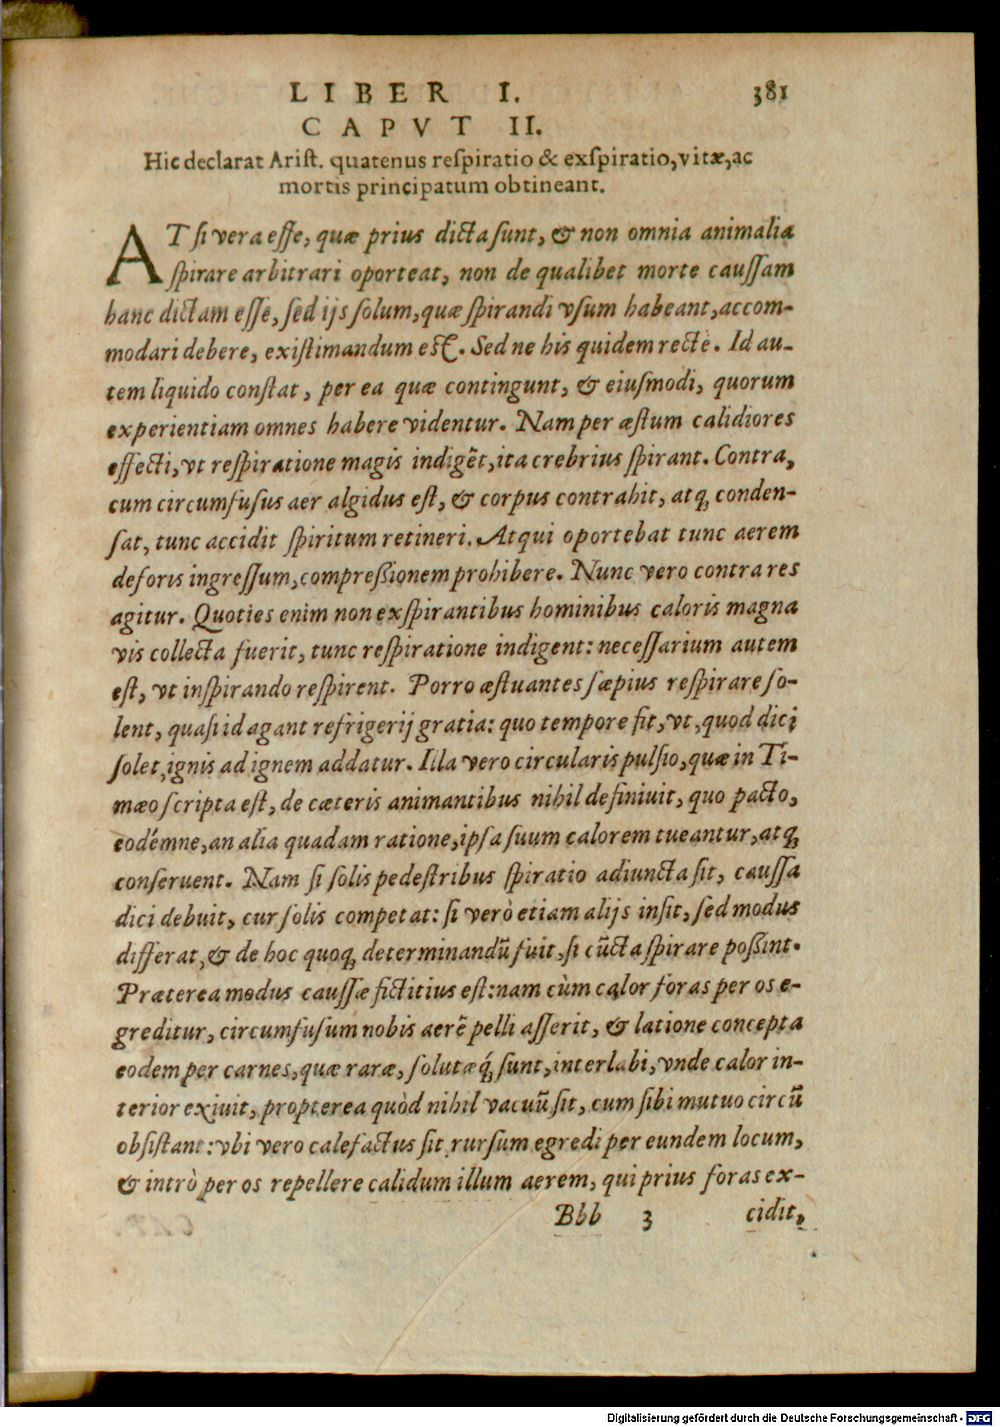 LIBER I. 381
CAPVT II.
Hic declarat Arist. quatenus respiratio & exspiratio, vitæ, ac
mortis principatum obtineant.
AT si vera esse, quæ prius dicta sunt, & non omnia animalia
spirare arbitrari oporteat, non de qualibet morte caussam
hanc dictam esse, sed ijs solum, quæ spirandi vsum habeant, accom-
modari debere, existimandum est. Sed ne his quidem recte. Id au-
tem liquido constat, per ea quæ contingunt, & eiusmodi, quorum
experientiam omnes habere videntur. Nam per æstum calidiores
effecti, vt respiratione magis indigẽt, ita crebrius spirant. Contra,
cum circumfusus aer algidus est, & corpus contrahit, atq; conden-
sat, tunc accidit spiritum retineri. Atqui oportebat tunc aerem
deforis ingressum, compreßionem prohibere. Nunc vero contra res
agitur. Quoties enim non exspirantibus hominibus caloris magna
vis collecta fuerit, tunc respiratione indigent: necessarium autem
est, vt inspirando respirent. Porro æstuantes sæpius respirare so-
lent, quasi id agant refrigerij gratia: quo tempore fit, vt, quod dici
solet, ignis ad ignem addatur. Illa vero circularis pulsio, quæ in Ti-
mæo scripta est, de cæteris animantibus nihil definiuit, quo pacto,
eodémne, an alia quadam ratione, ipsa suum calorem tueantur, atq;
conseruent. Nam si solis pedestribus spiratio adiuncta sit, caussa
dici debuit, cur solis competat: si verò etiam alijs insit, sed modus
differat, & de hoc quoq; determinandũ fuit, si cũcta spirare poßint.
Præterea modus caussæ fictitius est: nam cùm calor foras per os e-
greditur, circumfusum nobis aerẽ pelli asserit, & latione concepta
eodem per carnes, quæ raræ, solutæq́; sunt, interlabi, vnde calor in-
terior exiuit, propterea quòd nihil vacuũ sit, cum sibi mutuo circũ
obsistant: vbi vero calefactus sit rursum egredi per eundem locum,
& intrò per os repellere calidum illum aerem, qui prius foras ex-
Bbb 3 cidit,
Digitalisierung gefördert durch die Deutsche Forschungsgemeinschaft - DFG